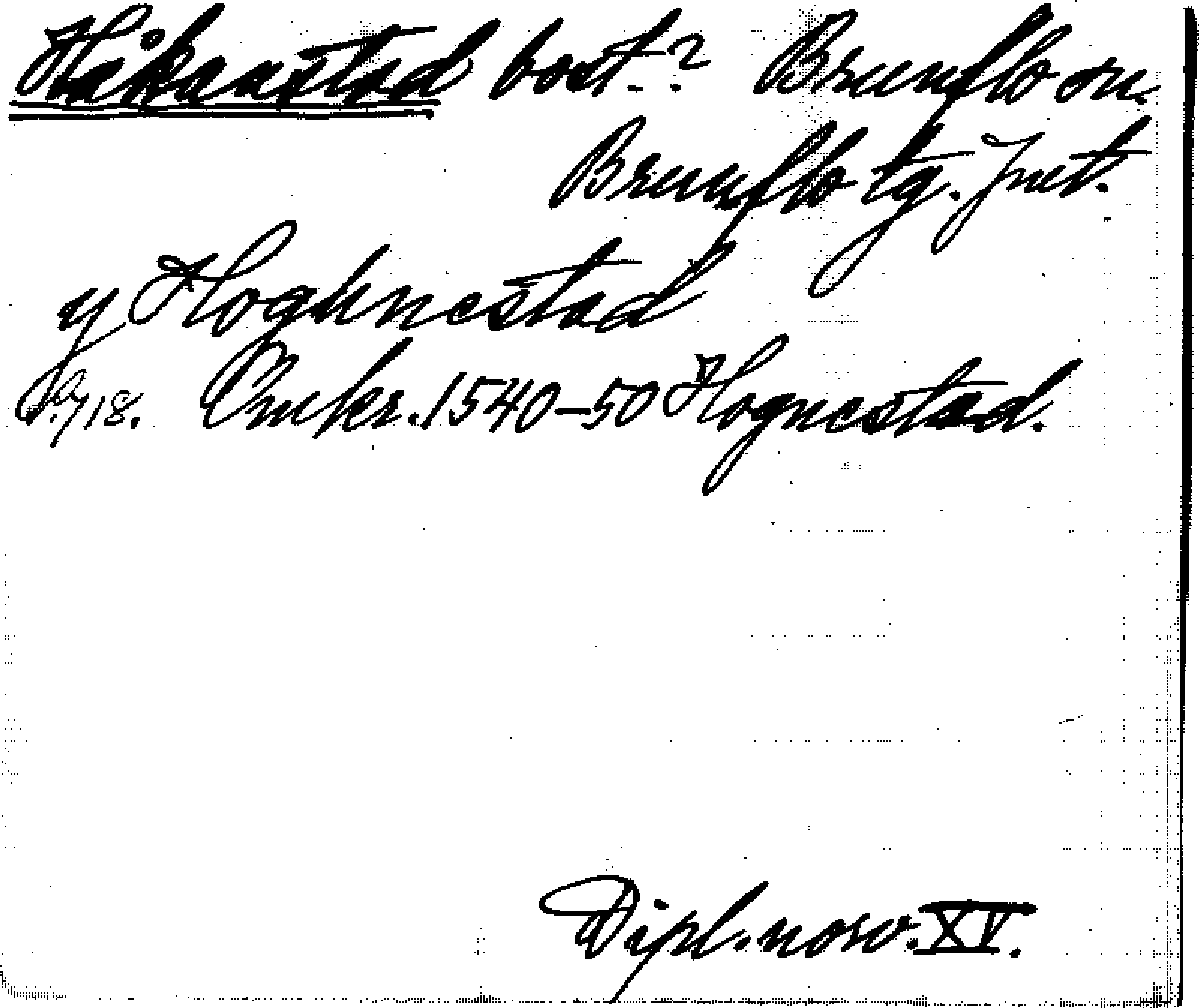 Håkanstad bost.? Brunflo sn.
Brunflo tg. Jmt.
y Hoghnestad
Omkr. 1540–50 Hognestad.
Dipl. norv. XV.